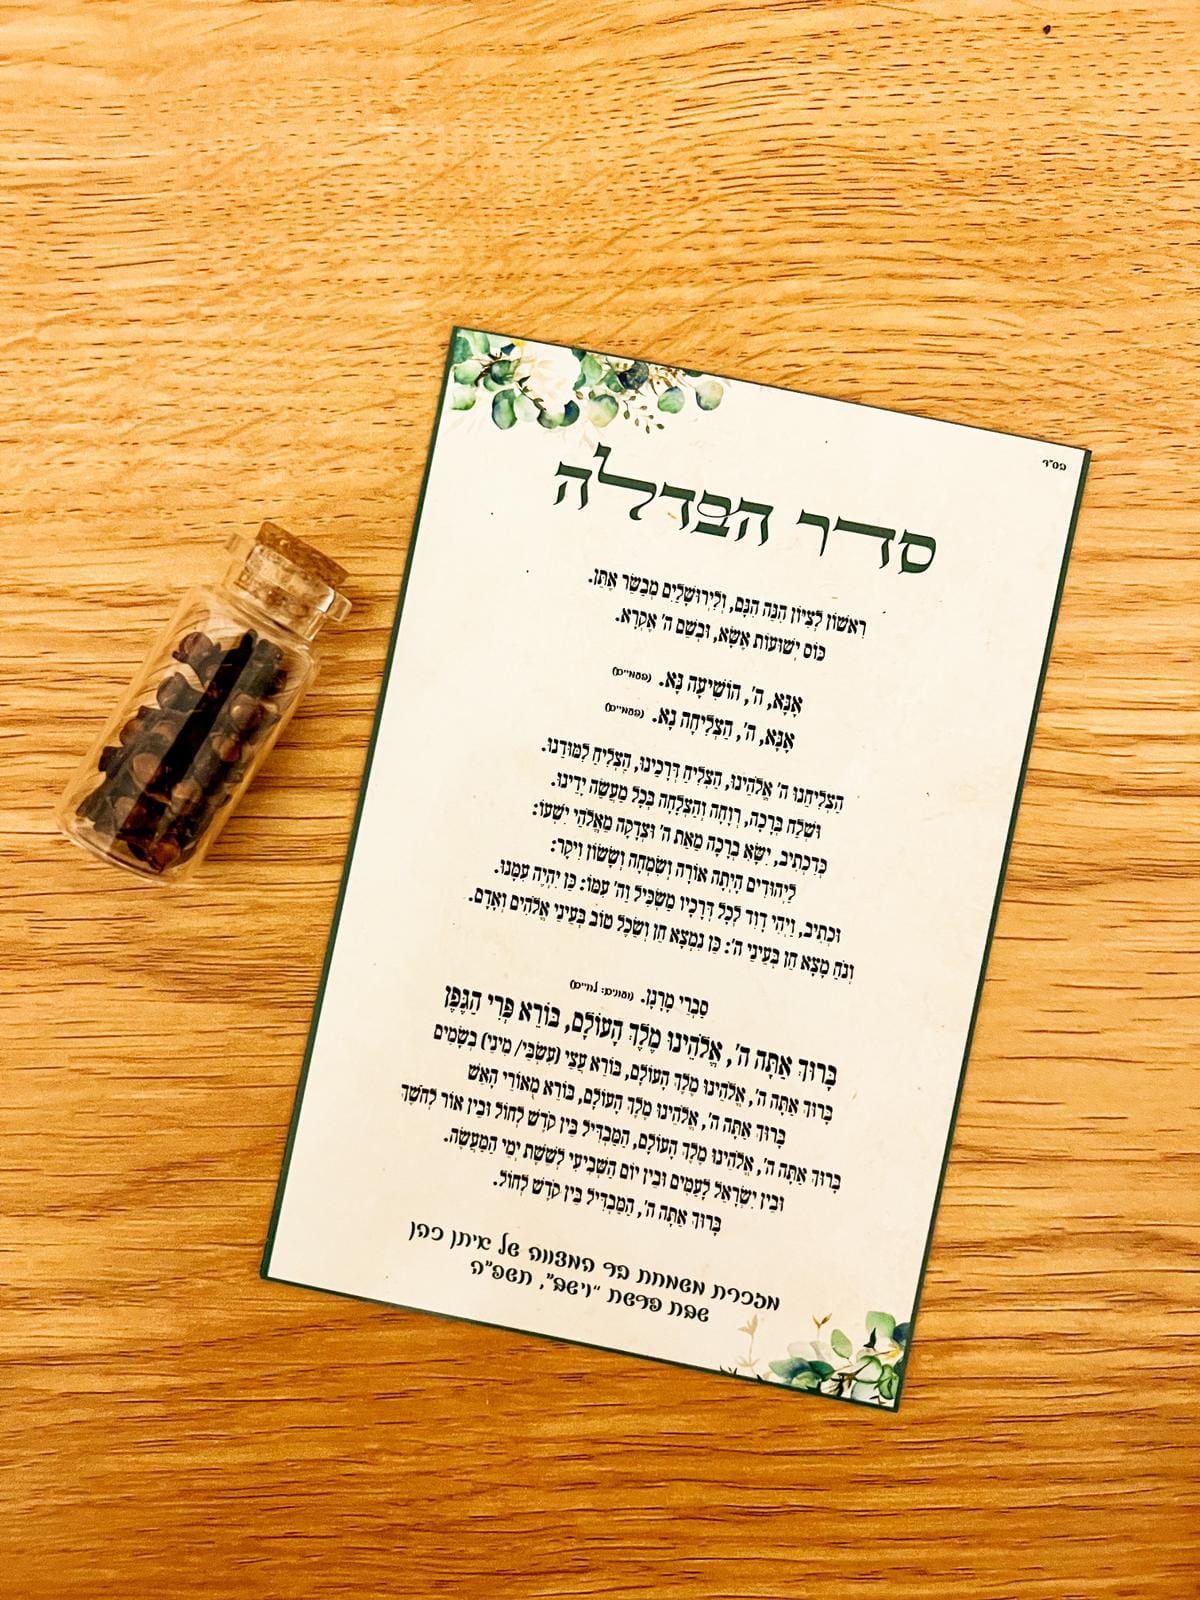 בס"ד
סדר הבדלה
רִאשׁוֹן לְצִיּוֹן הִנֵּה הִנָּם, וְלִירוּשָׁלַיִם מְבַשֵּׂר אֶתֵּן.
כּוֹס יְשׁוּעוֹת אֶשָּׂא, וּבְשֵׁם ה' אֶקְרָא.
אָנָּא, ה', הוֹשִׁיעָה נָּא. (פעמיים)
אָנָּא, ה', הַצְלִיחָה נָא. (פעמיים)
הַצְלִיחֵנוּ ה' אֱלֹהֵינוּ, הַצְלִיחַ דְּרָכֵינוּ, הַצְלִיחַ לִמּוּדֵנוּ.
וּשְׁלַח בְּרָכָה, רְוָחָה וְהַצְלָחָה בְּכָל מַעֲשֵׂה יָדֵינוּ.
כְּדִכְתִיב, יִשָּׂא בְרָכָה מֵאֵת ה' וּצְדָקָה מֵאֱלֹהֵי יִשְׁעוֹ:
לַיְּהוּדִים הָיְתָה אוֹרָה וְשִׂמְחָה וְשָׂשׂוֹן וִיקָר:
וּכְתִיב, וַיְהִי דָוִד לְכָל דְּרָכָיו מַשְׂכִּיל וַה' עִמּוֹ: כֵּן יִהְיֶה עִמָּנוּ.
וְנֹחַ מָצָא חֵן בְּעֵינֵי ה': כֵּן נִמְצָא חֵן וְשֵׂכֶל טוֹב בְּעֵינֵי אֱלֹהִים וְאָדָם.
סַבְרִי מָרָנָן. (ועונים: לחיים)
בָּרוּךְ אַתָּה ה', אֱלֹהֵינוּ מֶלֶךְ הָעוֹלָם, בּוֹרֵא פְּרִי הַגֶּפֶן
בָּרוּךְ אַתָּה ה', אֱלֹהֵינוּ מֶלֶךְ הָעוֹלָם, בּוֹרֵא עֲצֵי (עִשְׂבֵּי/ מִינֵי) בְשָׂמִים
בָּרוּךְ אַתָּה ה', אֱלֹהֵינוּ מֶלֶךְ הָעוֹלָם, בּוֹרֵא מְאוֹרֵי הָאֵשׁ
בָּרוּךְ אַתָּה ה', אֱלֹהֵינוּ מֶלֶךְ הָעוֹלָם, הַמַּבְדִּיל בֵּין קֹדֶשׁ לְחוֹל וּבֵין אוֹר לְחֹשֶׁךְ
וּבֵין יִשְׂרָאֵל לָעַמִּים וּבֵין יוֹם הַשְּׁבִיעִי לְשֵׁשֶׁת יְמֵי הַמַּעֲשֶׂה.
בָּרוּךְ אַתָּה ה', הַמַּבְדִּיל בֵּין קֹדֶשׁ לְחוֹל.
מזכרת משמחת בר המצווה של איתן כהן
שבת פרשת "וישב", תשפ"ה